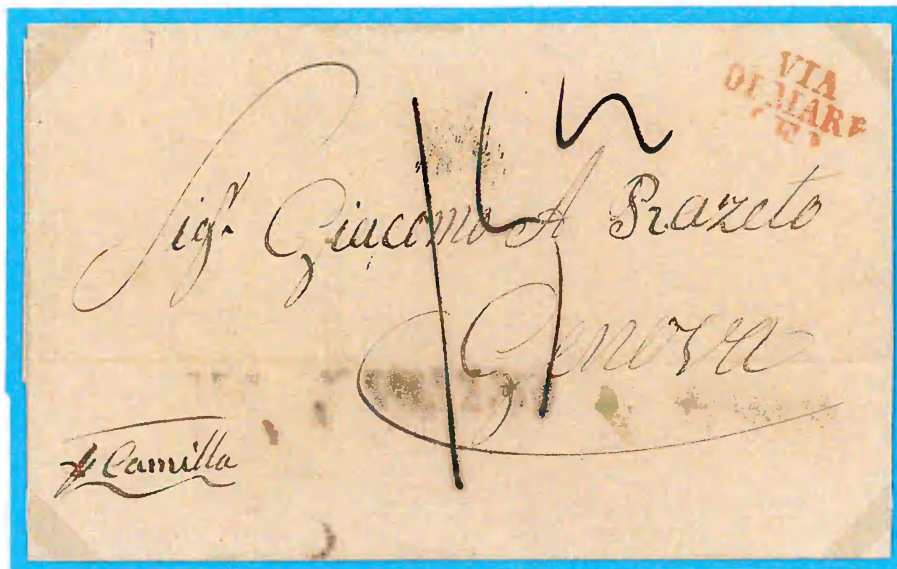 VIA
DI MARE
(E)
Sigr. Giacomo A Razeto
Genova
p Camilla